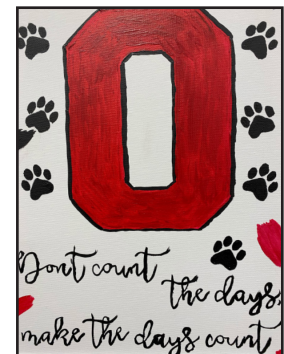 O
Dont count
the days,
make the days count